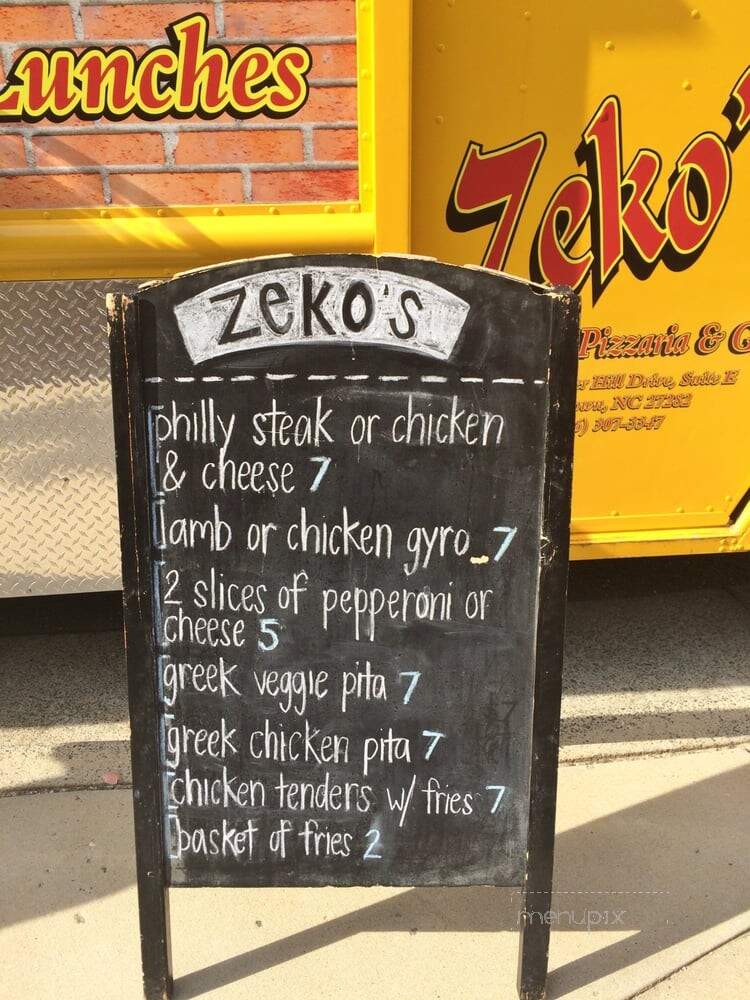 Lunches
Zeko's
Pizzaria &
Hill Drive, Suite E
NC 27282
307-3347
ZEKO'S
philly steak or chicken
& cheese 7
lamb or chicken gyro 7
2 slices of pepperoni or
cheese 5
greek veggie pita 7
greek chicken pita 7
chicken tenders w/ fries 7
basket of fries 2
menupix